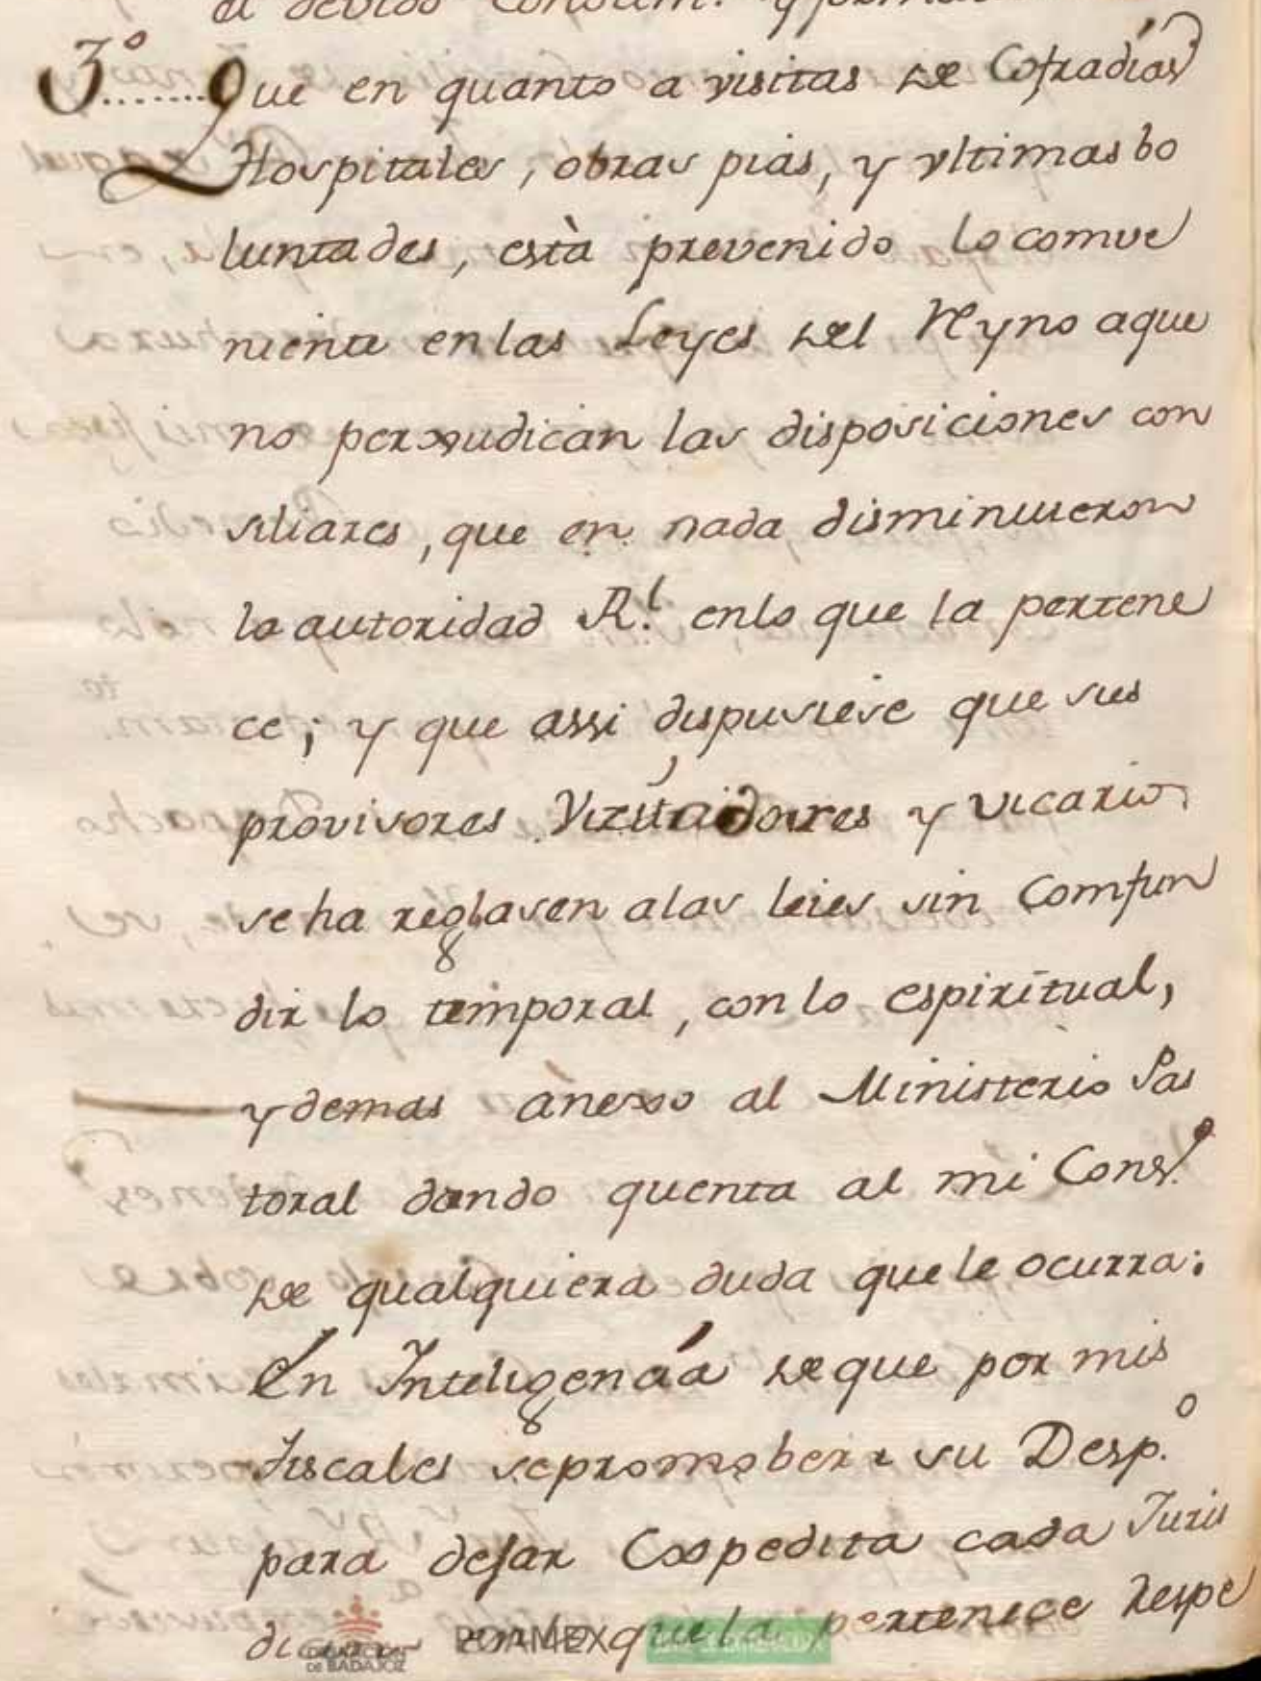 el devido
3º........Que en quanto a visitas de Cofradias
Hospitales, obras pias, y vltimas bo
luntades, està prevenido lo comve
niente en las Leyes del Reyno aque
no perxudican las disposiciones con
siliares, que en nada disminuieron
la autoridad Rl. enlo que la pertene
ce; y que assi dispusiese que sus
provisores Visitadores y vicarios
se ha reglasen alas leies sin Comfun
dir lo temporal, con lo espiritual,
y demas anexo al Ministerio Pas
toral dando quenta al mi Consº.
de qualquiera duda que le ocurra:
En Inteligencia de que por mis
Fiscales se promoberà su Despº.
para dejar Expedita cada Juris
enlo que la pertenece Respe
DIPUTACION
DE BADAJOZ